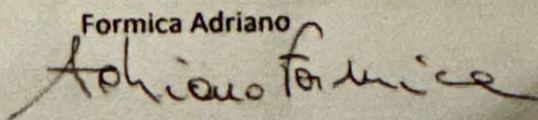 Formica Adriano
Adriano Formica